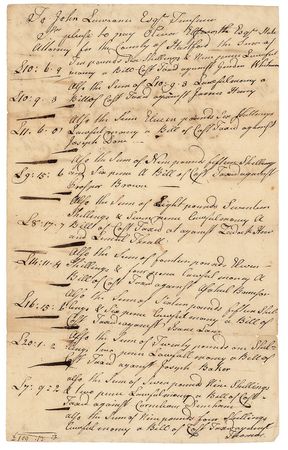 To John Lawrance Esqr Treasurer
Sir please to pay Oliver Ellsworth Esqr State
Attorney for the County of Hartford the Sum of
Ten pounds Six Shillings & Nine pence Lawfull
£10: 6: 9 money a Bill of Cost Taxd against Gideon
Also the Sum of £10: 9: 3 Lawfull money a
£10: 9: 3 Bill of Cost Taxd against James Henry
Also the Sum Eleven pounds Six Shillings
£11: 6: 0 Lawfull money a Bill of Cost Taxd against
Joseph
Also the Sum of Nine pounds fifteen Shillings
£9: 15: 6 and Six pence A Bill of Cost Taxd against
Brown
Also the Sum of Eight pounds Seventeen
Shillings & Seven pence Lawfull money A
£8: 17: 7 Bill of Cost Taxd against Zadock How
and
Also the Sum of fourteen pounds Eleven
£14: 11: 4 Shillings & four pence Lawfull money A
Bill of Cost Taxd against
Also the Sum of Sixteen pounds fifteen Shil
£16: 15: lings & Six pence Lawfull money a Bill of
Cost Taxd against Isaac
also the Sum of Twenty pounds one Shil
£20: 1: 2 lings two pence Lawfull money a Bill of
Cost Taxd against Joseph Baker
also the Sum of Seven pounds Nine Shillings
£7: 9: 2 & two pence Lawfull money a Bill of Cost
Taxd against Cornelius
also the Sum of Nine pounds four Shillings
Lawfull money a Bill of Cost Taxd against
Thomas